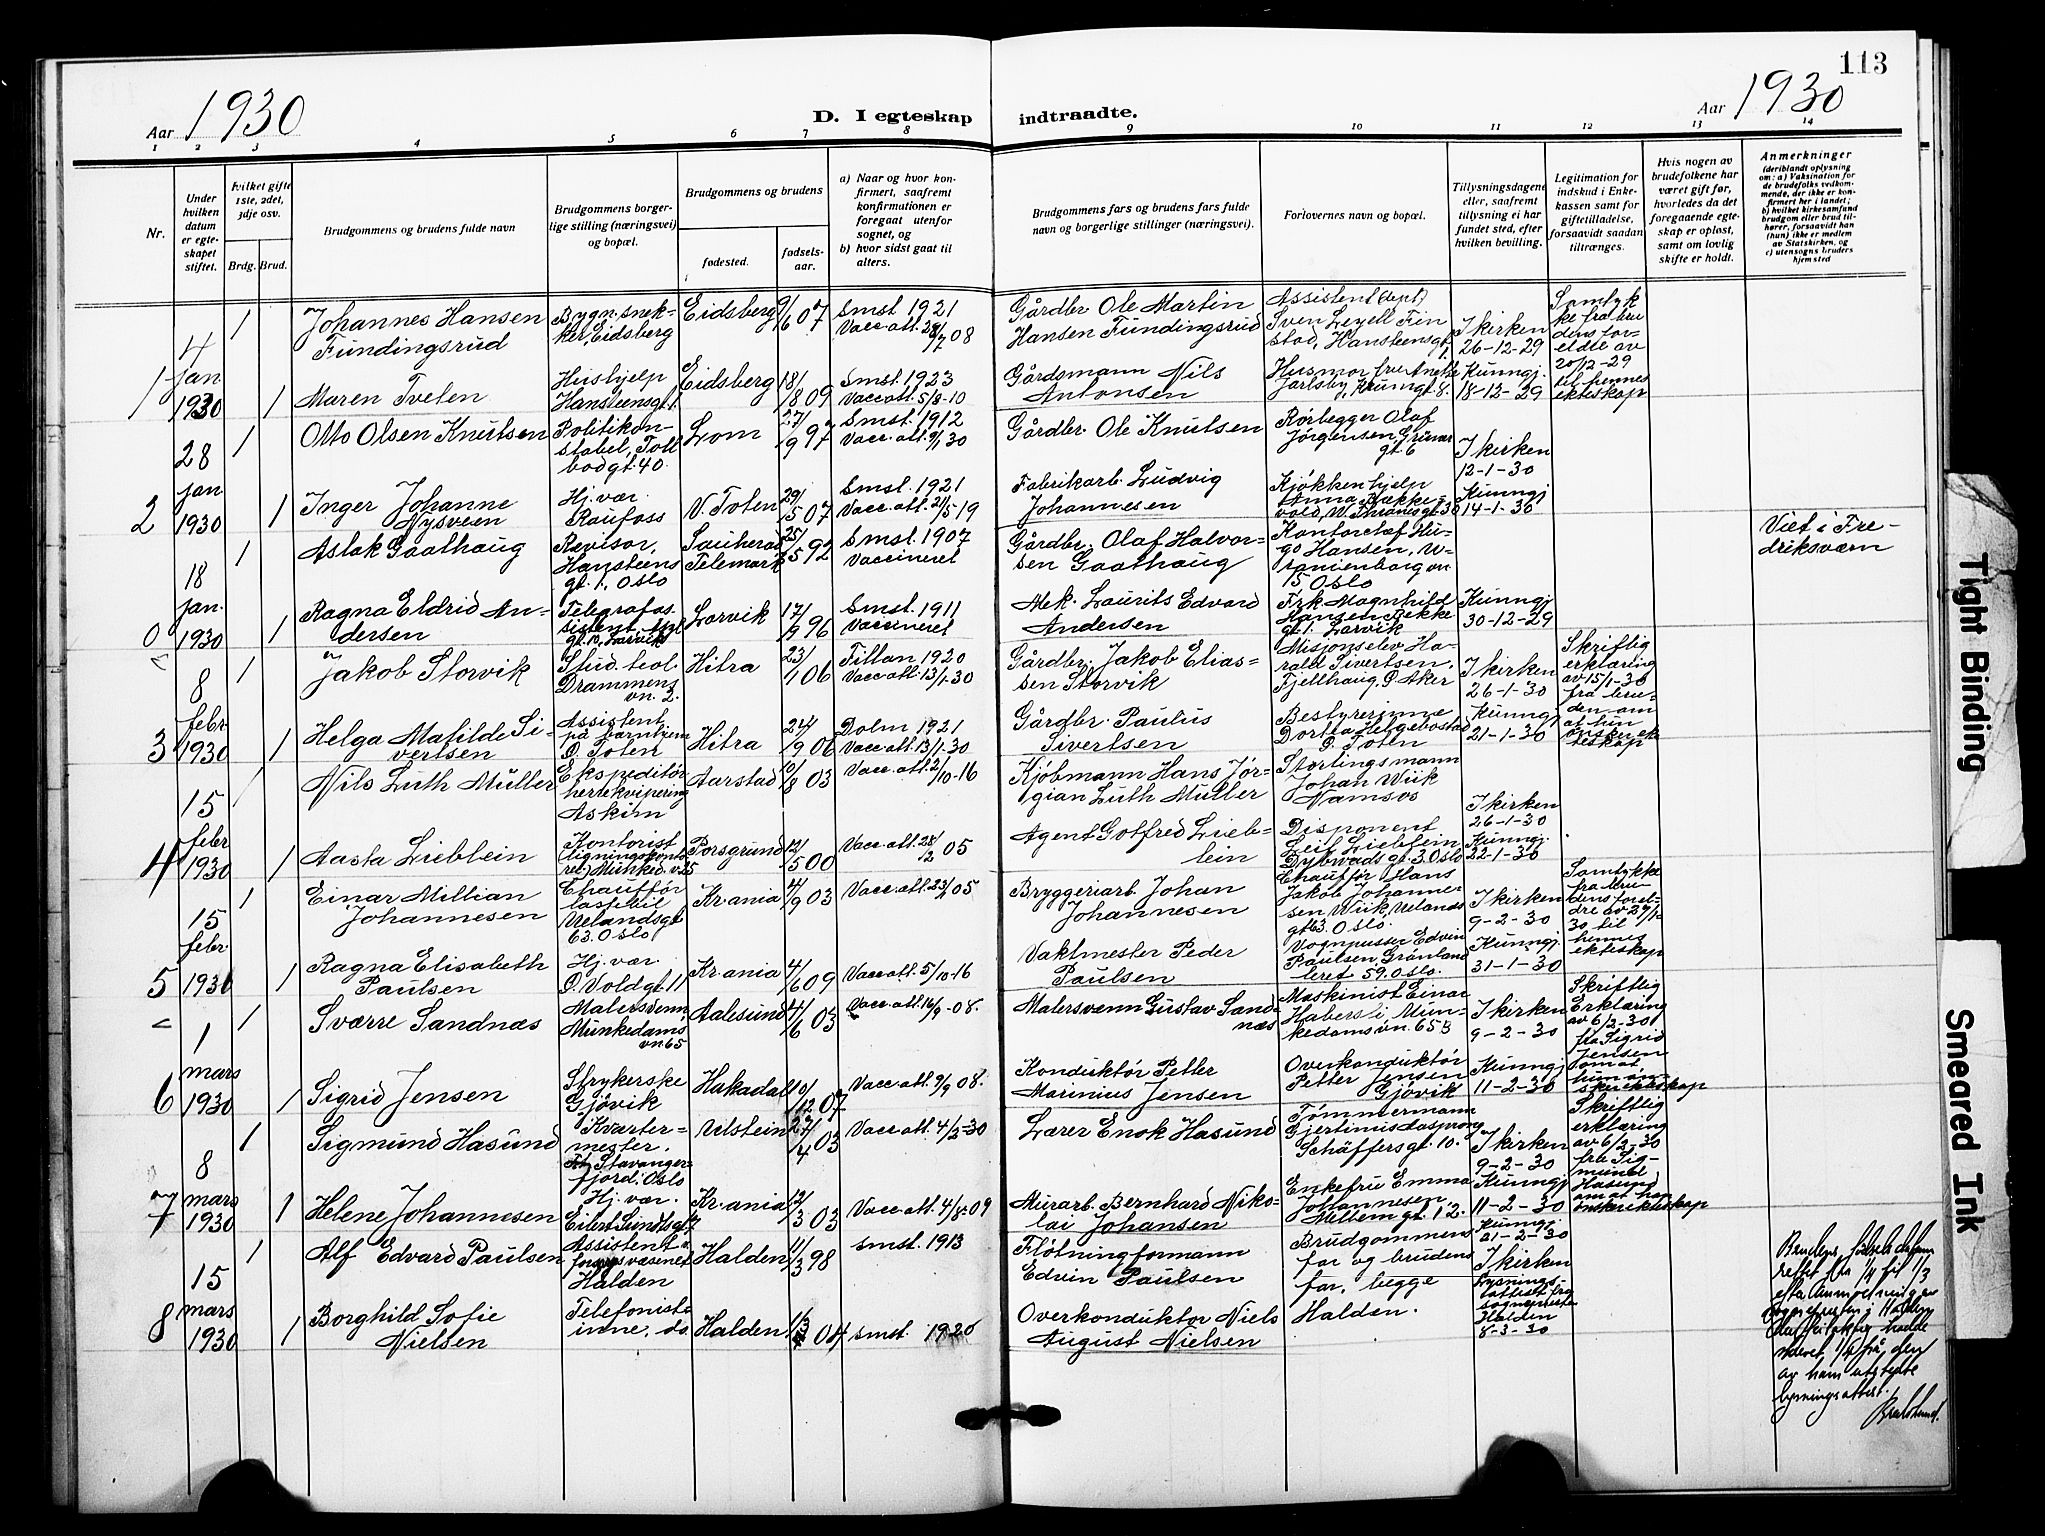 113
Aar 1930
D. I egteskap
indtraadte.
Aar 1930
1 2 3 4 5 6 7 8 9 10 11 12 13 14
Nr.
Under hvilken datum er egte-skapet stiftet.
Hvilket gifte 1ste, 2det, 3dje osv.
Brdg. Brud.
Brudgommens og brudens fulde navn
Brudgommens borger-lige stilling (næringsvei) og bopæl.
Brudgommens og brudens
fødested.
fødsels-aar.
a) Naar og hvor kon-firmert, saafremt konfirmationen er foregaat utenfor sognet, og
b) hvor sidst gaat til alters.
Brudgommens fars og brudens fars fulde navn og borgerlige stillinger (næringsvei).
Forlovernes navn og bopæl.
Tillysningsdagene eller, saafremt tillysning ei har fundet sted, efter hvilken bevilling.
Legitimation for indskud i Enke-kassen samt for giftetilladelse, forsaavidt saadan tiltrænges.
Hvis nogen av brudefolkene har været gift før, hvorledes da det foregaaende egte-skap er opløst, samt om lovlig skifte er holdt.
Anmerkninger
(deriblandt oplysning om: a) Vaksination for de brudefolks vedkom-mende, der ikke er kon-firmert her i landet; b) hvilket kirkesamfund brudgom eller brud til-hører, forsaavidt han (hun) ikke er medlem av Statskirken, og c) utensogns bruders hjemsted
1
4 jan 1930
1 Johannes Hansen Fundingsrud
Bygn.snek-ker, Eidsberg
Eidsberg 9/6 07
Smst. 1921
Vacc.att. 28/7 08
Gårdbr. Ole Martin Hansen Fundingsrud
Assistent (dept) Sven Leyell Fin stad, Hansteensgt. 1.
I kirken 26-12-29
Samtyk ke fra bru dens for-eldre av 20/12-29 til hennes ekteskap
1 Maren Tveten
Hushjelp Hansteensgt. 1.
Eidsberg 18/8 09
Smst. 1923
Vacc.att. 5/8-10
Gårdsmann Nils Antonsen
Husmor fru Jarlsby, Kruunsgt. 8.
Kunngj. 18-12-29
2
28 jan 1930
1 Otto Olsen Knutsen
Politikon-stabel, Toll bodgt. 40.
Lom 27/9 97
Smst. 1912
Vacc.att. 9/1 30
Gårdbr. Ole Knutsen
Rørlegger Olaf Jørgensen, Grüner gt. 6
I kirken 12-1-30
1 Inger Johanne Nysveen
Hj. vær. Raufoss
V. Toten 29/5 07
Smst. 1921
Vacc.att. 21/5 19
Fabrikarb. Ludvig Johannesen
Kjøkkenhjelp Anna Bakke-vold, W. Thranesgt. 30
Kunngj 14-1-30
0
18 jan. 1930
1 Aslak Gaathaug
Revisor, Hansteens gt. 1, Oslo
Sauherad Telemark 25/5 92
Smst. 1907
Vaccineret
Gårdbr. Olaf Halvor-sen Gaathaug
Kontorchef Hu-go Hansen, U-ranienborgvn 15 Oslo
Viet i Fre-driksværn
1 Ragna Eldrid An-dersen
Telegrafas sistent
gt. 10, Larvik
Larvik 17/9 96
Smst. 1911
Vaccineret
Mek. Laurits Edvard Andersen
Frk Magnhild Hansen, Bekke gt. 1. Larvik
Kunngj 30-12-29
3
8 febr 1930
1 Jakob Storvik
Stud. teol. Drammens vn. 2.
Hitra 23/1 06
Fillan 1920
Vacc.att. 13/1-30
Gårdbr. Jakob Elias-sen Storvik
Misjonselev Ha-rald Sivertsen, Fjellhaug, Ø. Aker
I kirken 26-1-30
Skriftlig erklæring av 15/1-30 fra bru-den om at hun ønsker ek teskap
1 Helga Matilde Si-vertsen
Assistent på barnehjem Ø. Toten
Hitra 24/9 06
Dolm 1921
Vacc.att. 13/1-30
Gårdbr. Paulus Sivertsen
Bestyrerinne Dortea Helgebostad Ø. Toten
Kunngj 21-1-30
4
15 febr 1930
1 Nils Luth Müller
Ekspeditør herrekvipering Askim
Aarstad 10/8 03
Vacc.att. 2/10-16
Kjøbmann Hans Jør-gian Luth Müller
Stortingsmann Johan Wiik Namsos
I kirken 26-1-30
1 Aasta Lieblein
Kontorist ligningskonto ret, Munked.v. 25
Porsgrund 12/5 00
Vacc.att. 28/2 05
Agent Gotfred Lieb-lein
Disponent Leif Lieblein Dybwads gt. 3 Oslo
Kunngj. 22-1-30
5
15 febr. 1930
1 Einar Millian Johannesen
Chauffør lastebil Uelandsgt 63. Oslo
Kr.ania 4/9 03
Vacc.att. 23/1 05
Bryggeriarb. Johan Johannesen
Chauffør Hans Jakob Johanne-sen Wiik, Uelands gt 63. Oslo.
I kirken 9-2-30
Samtykke fra bru dens forel-dre av 27/1-30 til hennes ekteskap
1 Ragna Elisabeth Paulsen
Hj. vær Ø. Voldgt. 11
Kr.ania 4/6 09
Vacc.att. 5/10-16
Vaktmester Peder Paulsen
Vognpusser Edvin Paulsen, Grønland leret 59. Oslo.
Kunngj. 31-1-30
6
1 mars 1930
1 Sverre Sandnæs
Malersvenn, Munkedams vn. 65
Aalesund 4/6 03
Vacc.att. 16/9-08.
Malersvenn Gustav Sand-næs
Maskinist Einar Munkedamsvn. 65 B
I kirken 9-2-30
Skriftlig Erklæring av 6/2-30 fra Sigrid Jensen om at hun øn-sker ekteskap
1 Sigrid Jensen
Strykerske Gjøvik
Hakadal 10/12 07
Vacc.att. 9/9 08.
Konduktør Petter Marinius Jensen
Overkonduktør Petter Jensen Gjøvik
Kunngj 11-2-30
7
8 mars 1930
1 Sigmund Hasund
Kvarter-mester, Stavanger-fjord. Oslo
Ulstein 27/4 03
Vacc.att. 4/2-30
Lærer Enok Hasund
Tømmermann Schäffersgt. 10.
I kirken 9-2-30
Skriftlig erklæring av 6/2-30 fra Sig-mund Hasund om at han ønsker ekteskap
1 Helene Johannesen
Hj. vær. Eilert Sundtsgt. 7
Kr.ania 12/3 03
Vacc.att. 4/8-09
Murarb. Bernhard Niko-lai Johansen
Enkefru Emma Johannesen, Meltzers gt. 12.
Kunngj 11-2-30
8
15 mars 1930
1 Alf Edvard Paulsen
Assistent v. Halden
Halden 11/3 98
Smst. 1913
Fløtningformann Edvin Paulsen
Brudgommens far og brudens far, begge Halden.
Kunngj 21-2-30
I kirken
Lysnings-attest fra sogneprest Halden 8-3-30
1 Borghild Sofie Nielsen
Telefonist inne, do
Halden 11/3 04
Smst. 1920
Overkonduktør Niels August Nielsen
Brudens fødselsdatum rettet fra 1/4 til 1/3 efter anmeldning av sogneprest i Halden
av ham utstedte lysningsattest.
Tight Binding
Smeared Ink